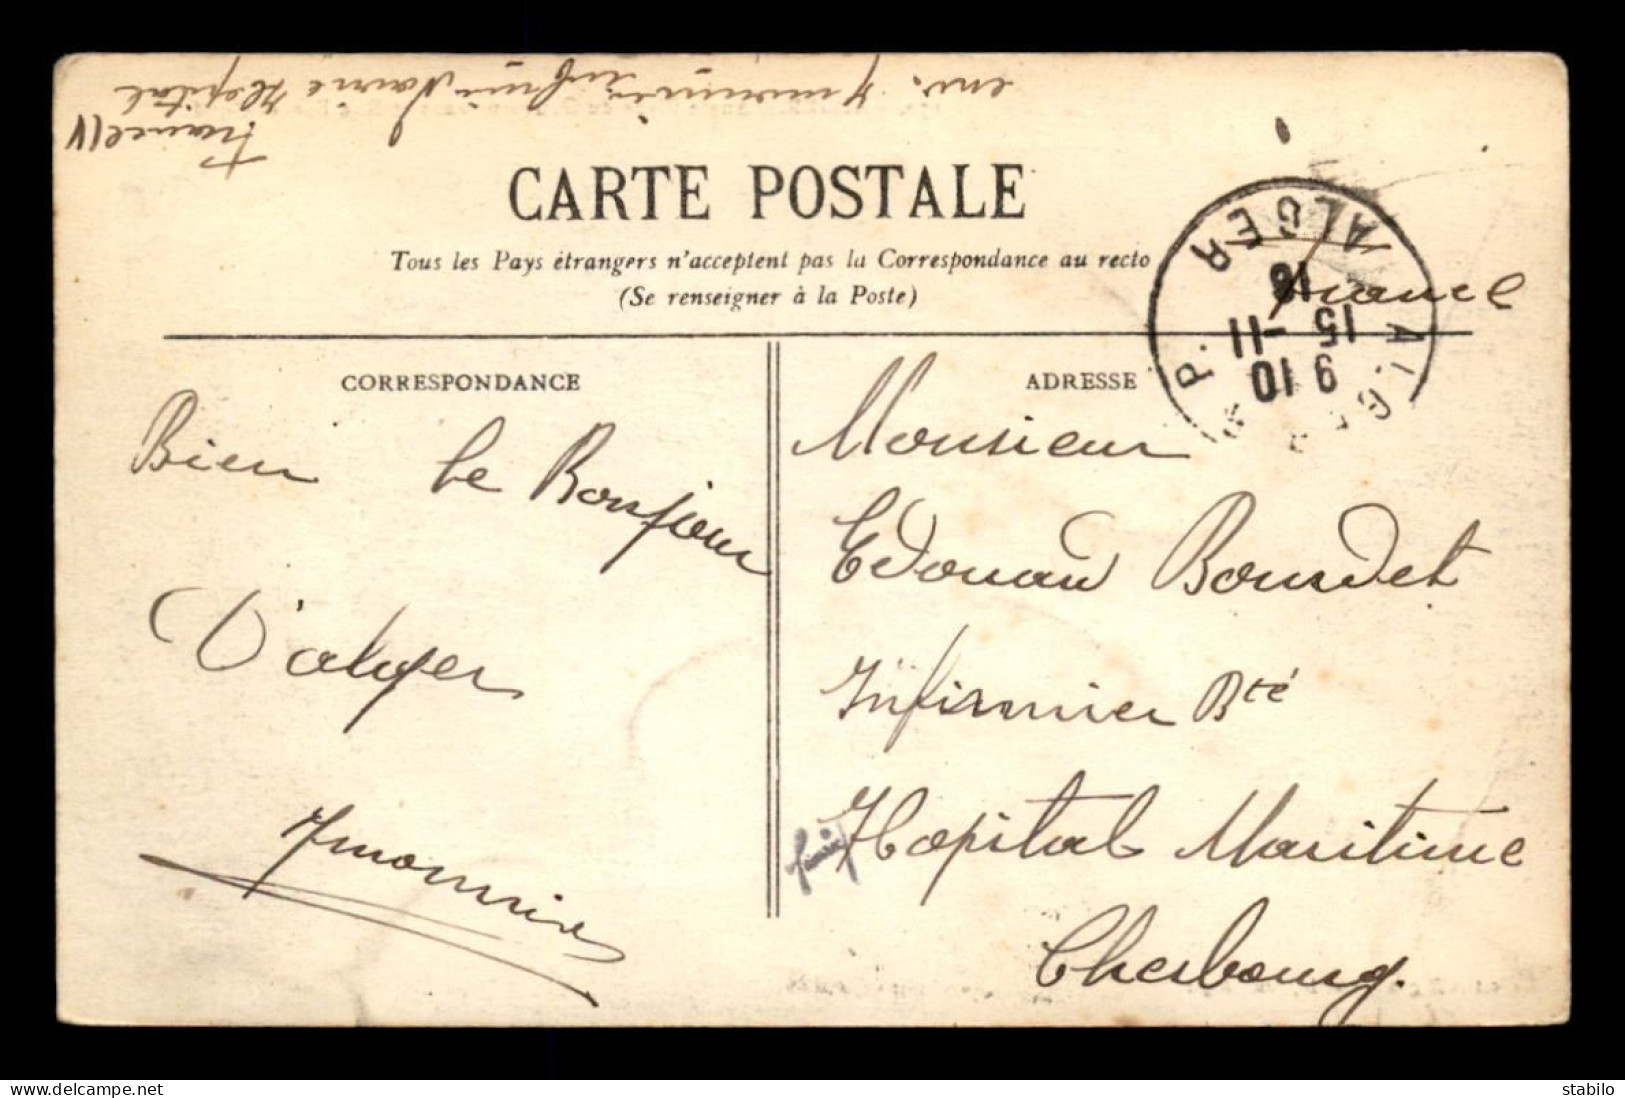 env. infir Marine Hopital
France
CARTE POSTALE
Tous les Pays étrangers n'acceptent pas la Correspondance au recto
(Se renseigner à la Poste)
ALGER ALGER
16
15 -11
9 10
R. P.
France
CORRESPONDANCE
Bien le Bonjour
D'alger
ADRESSE
Monsieur
Edouard Bourdet
Infirmier Bté
Hopital Maritime
Cherbourg.
delcampe.net
stabilo